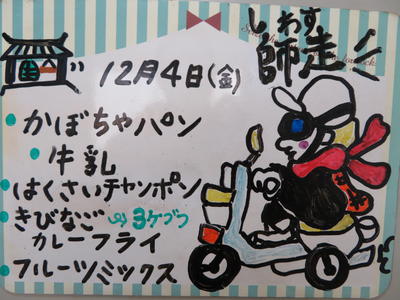 しわす
師走
12月4日(金)
かぼちゃパン
牛乳
はくさいチャンポン
きびなご 3ケづつ
カレーフライ
フルーツミックス